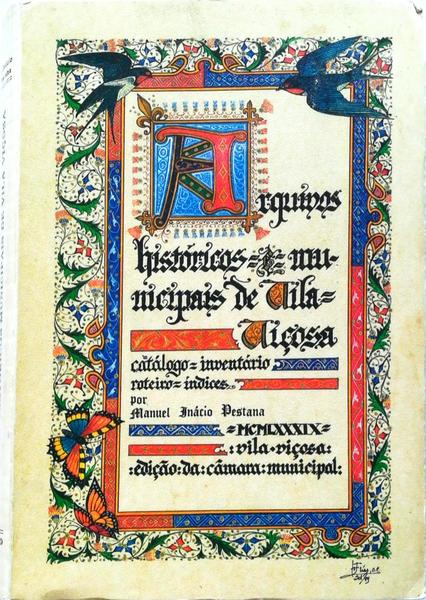 Arquivos
históricos = e = mu=
nicipais de Vila=
Viçosa
catálogo = inventário
roteiro = índices
por
Manuel Inácio Pestana
=MCMLXXXIX=
:vila·viçosa:
:edição:da:câmara:municipal: